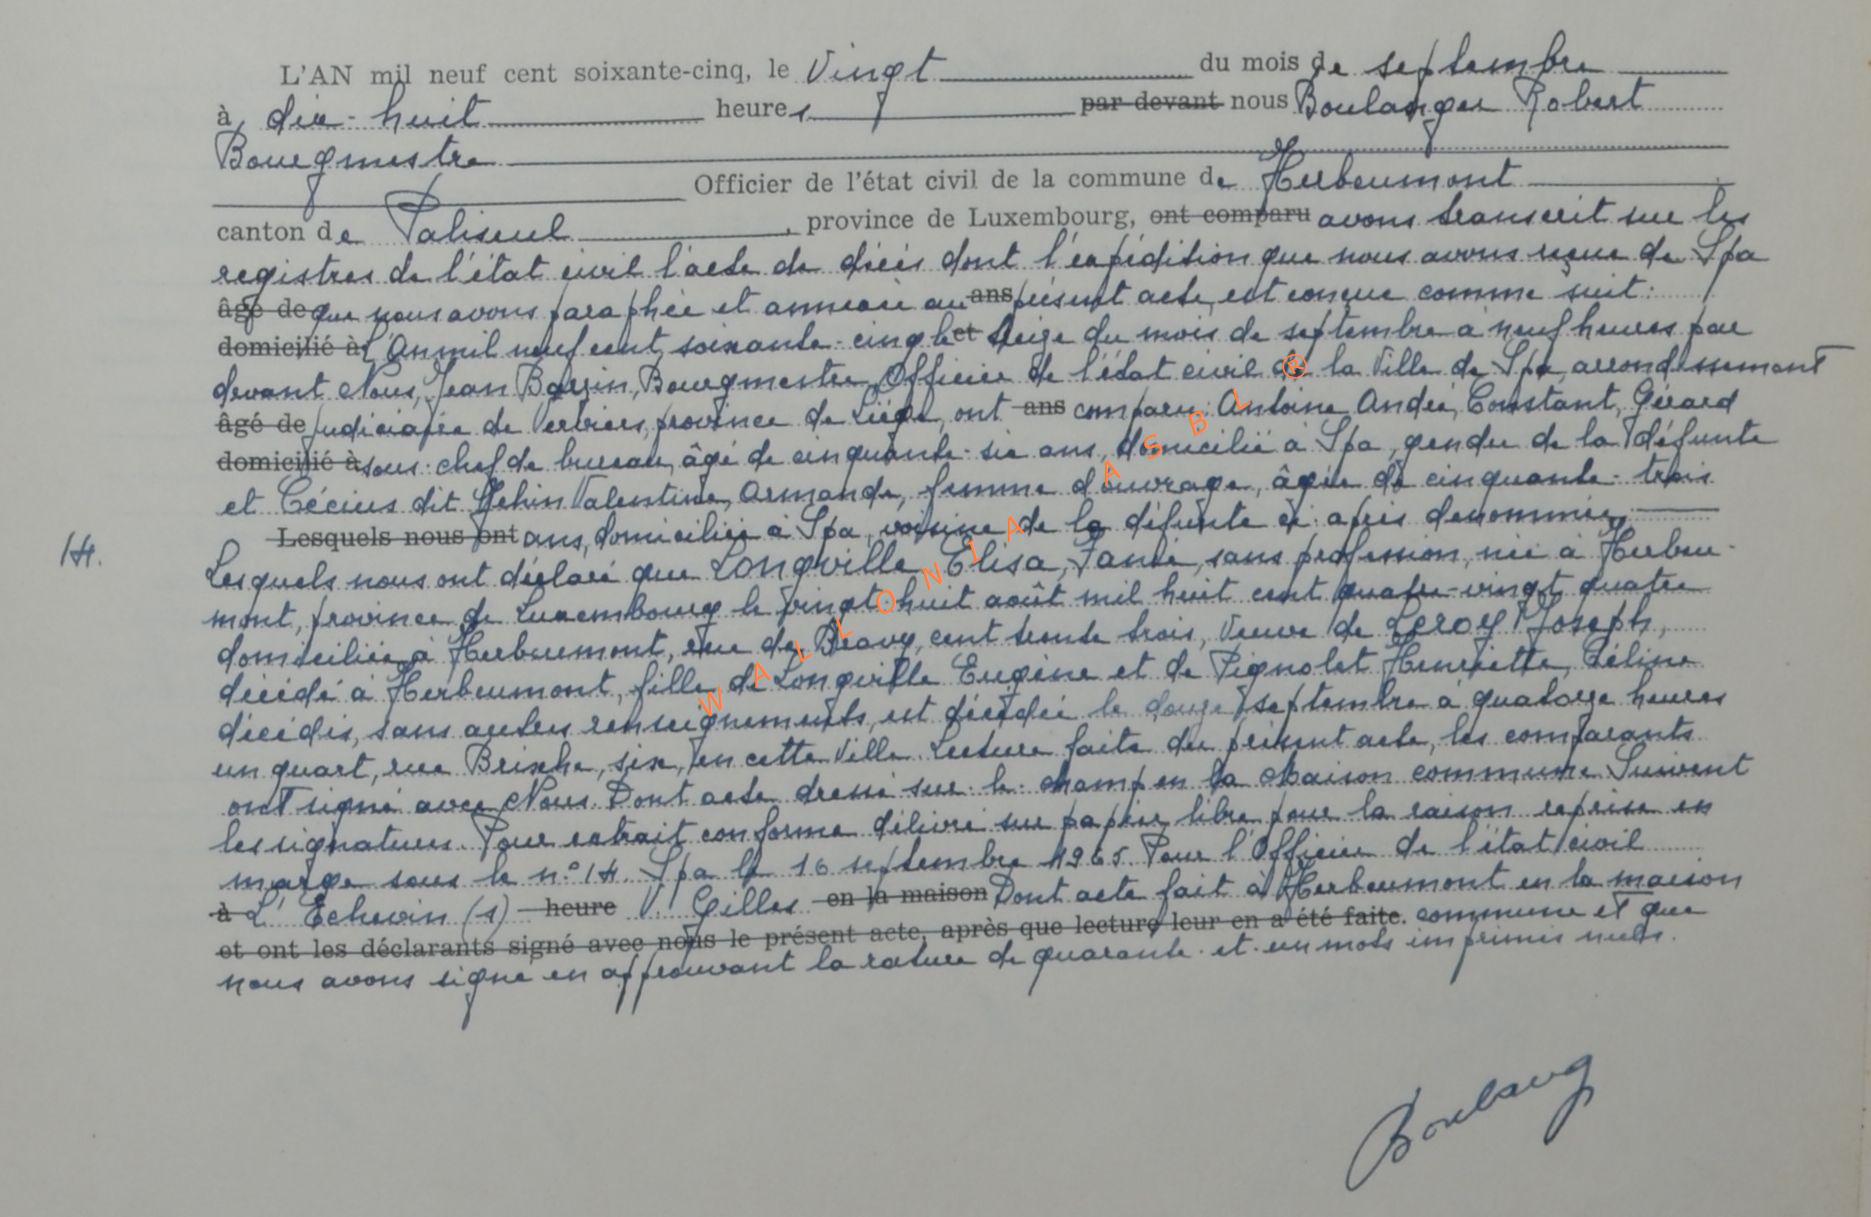 L'AN mil neuf cent soixante-cinq, le Vingt du mois de septembre
à dix-huit heures par devant nous Boulanger Robert
Bourgmestre
Officier de l'état civil de la commune de Herbeumont
canton de Paliseul, province de Luxembourg, ont comparu avons transcrit sur les
registres de l'état civil l'acte de décès dont l'expédition que nous avons reçue de Spa
âgé de que nous avons paraphée et annexée au ans présent acte, est conçue comme suit:
domicilié à L'An mil neuf cent soixante-cinq le et seize du mois de septembre à neuf heures par
devant Nous, Jean Bourgmestre, Officier de l'état civil de la Ville de Spa, arrondissement
âgé de judiciaire de Verviers, province de Liège, ont ans comparu: Antoine André, Constant, Gérard
domicilié à sous-chef de bureau, âgé de cinquante-six ans, domicilié à Spa, gendre de la défunte
et Cécius dit Valentine, Armande, femme d'ouvrage, âgée de cinquante-trois
Lesquels nous ont ans, domiciliée à Spa, voisine de la défunte ci-après dénommée,
14.
Lesquels nous ont déclaré que Longville Elisa, Fanie, sans profession, née à Herbeu-
mont, province de Luxembourg le vingt-huit août mil huit cent quatre-vingt quatre
domiciliée à Herbeumont, rue de Bravy, cent trente trois, Veuve de Leroy Joseph,
décédé à Herbeumont, fille de Longville Eugène et de Pignolet Henriette, Céline
décédés, sans autres renseignements, est décédée le douze septembre à quatorze heures
un quart, rue Brixhe, six, en cette Ville. Lecture faite du présent acte, les comparants
ont signé avec Nous. Dont acte dressé sur-le-champ en la Maison commune. Suivent
les signatures. Pour extrait conforme délivré sur papier libre pour la raison reprise en
marge sous le n.° 14. Spa le 16 septembre 1965. Pour l'Officier de l'état civil
à L'Echevin (s) heure V. Gilles en la maison Dont acte fait à Herbeumont en la maison
et ont les déclarants signé avec nous le présent acte, après que lecture leur en a été faite. commune et que
nous avons signé en approuvant la rature de quarante-et-un mots imprimés nuls.
Boulang
WALLONIA ASBL ®